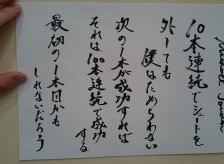 10本連続でシュートを
外しても
僕はためらわない
次の1本が成功すれば
それは100本連続で成功
する
最初の1本目かも
しれないだろう